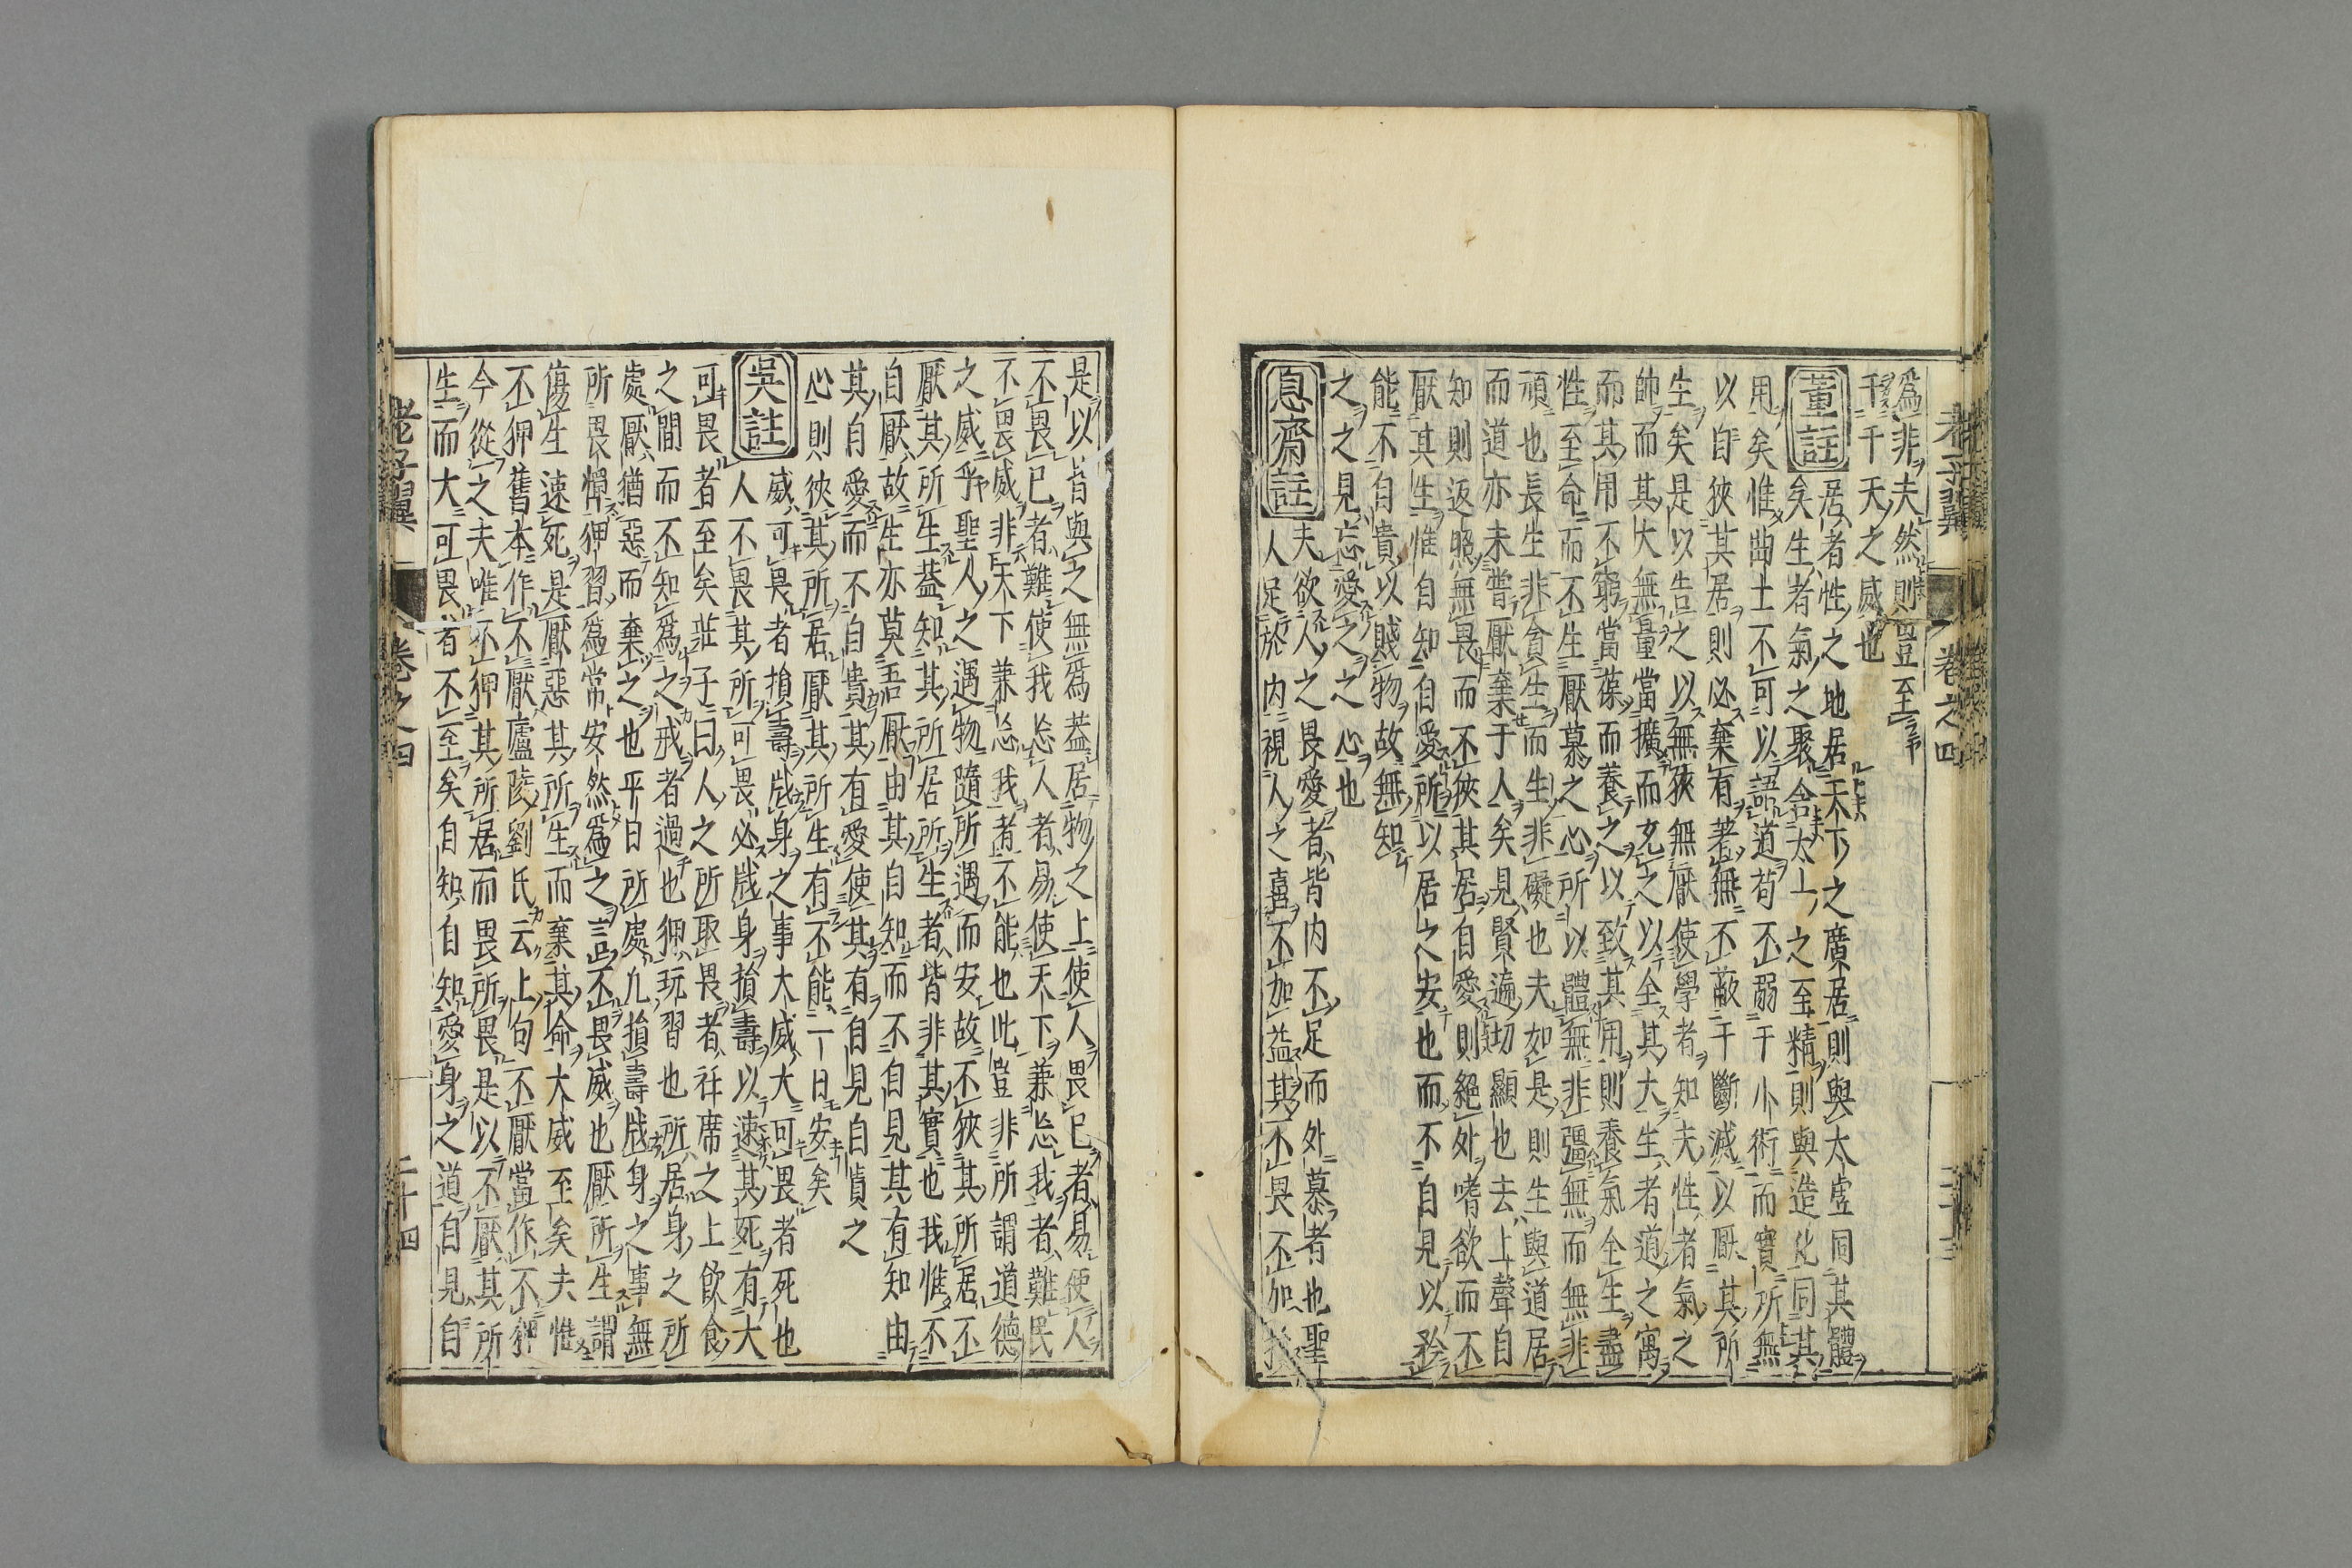 老子翼 卷之四 二十三
爲非夫然則豈至
干干天之威也
董註 居者性之地居天下之廣居則與太虛同其體
矣生者氣之聚含太上之至精則與造化同其
用矣惟曲士不可以語道苟不溺于小術而實所無
以自狹其居則必棄有著無不蔽于斷滅以厭其所
生矣是以告之以無狹無厭使學者知夫性者氣之
帥而其大無量當擴而充之以全其大生者道之寓
而其用不窮當葆而養之以致其用則養氣全生盡
性至命而不生厭慕之心所以體無非彊無而無非
頑也長生非貪生而生非礙也夫如是則生與道居
而道亦未嘗厭棄于人矣見賢遍切顯也去上聲自
知則返照無畏而不狹其居自愛則絕外嗜欲而不
厭其生惟自知自愛所以居之安也而不自見以矜
能不自貴以賤物故無知
之之見忘愛之之心也
息齋註 夫欲人之畏愛者皆内不足而外慕者也聖
人足於内視人之喜不加益其不畏不加
是以皆與之無爲葢居物之上使人畏已者易使人
不畏已者難使我忘人者易使天下兼忘我者難民
不畏威非天下兼忘我者不能也此豈非所謂道德
之威乎聖人之遇物隨所遇而安故不狹其所居不
厭其所生葢知其所居所生者皆非其實也我惟不
自厭故生亦莫吾厭由其自知而不自見其有知由
其自愛而不自貴其有愛使其有自見自貴之
心則狹其所居厭其所生有不能一日安矣
吳註 威可畏者損壽戕身之事大威大可畏者死也
人不畏其所可畏必戕身損壽以速其死有大
可畏者至矣莊子曰人之所取畏者衽席之上飲食
之間而不知爲之戒者過也狎玩習也所居身之所
處厭猶惡而棄之也平日所處凡損壽戕身之事無
所畏憚狎習爲常安然爲之言不畏威也厭所生謂
傷生速死是厭惡其所生而棄其命大威至矣夫惟
不狎舊本作不厭廬陵劉氏云上句不厭當作不狎
今從之夫唯不狎其所居而畏所畏是以不厭其所
生而大可畏者不至矣自知自知愛身之道自見自
老子翼 卷之四 二十四